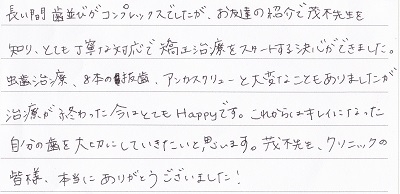 長い間歯並びがコンプレックスでしたが、お友達の紹介で茂木先生を
知り、とても丁寧な対応で矯正治療をスタートする決心ができました。
虫歯治療、8本の抜歯、アンカースクリューと大変なこともありましたが
治療が終わった今はとてもHappyです。これからはキレイになった
自分の歯を大切にしていきたいと思います。茂木先生、クリニックの
皆様、本当にありがとうございました！